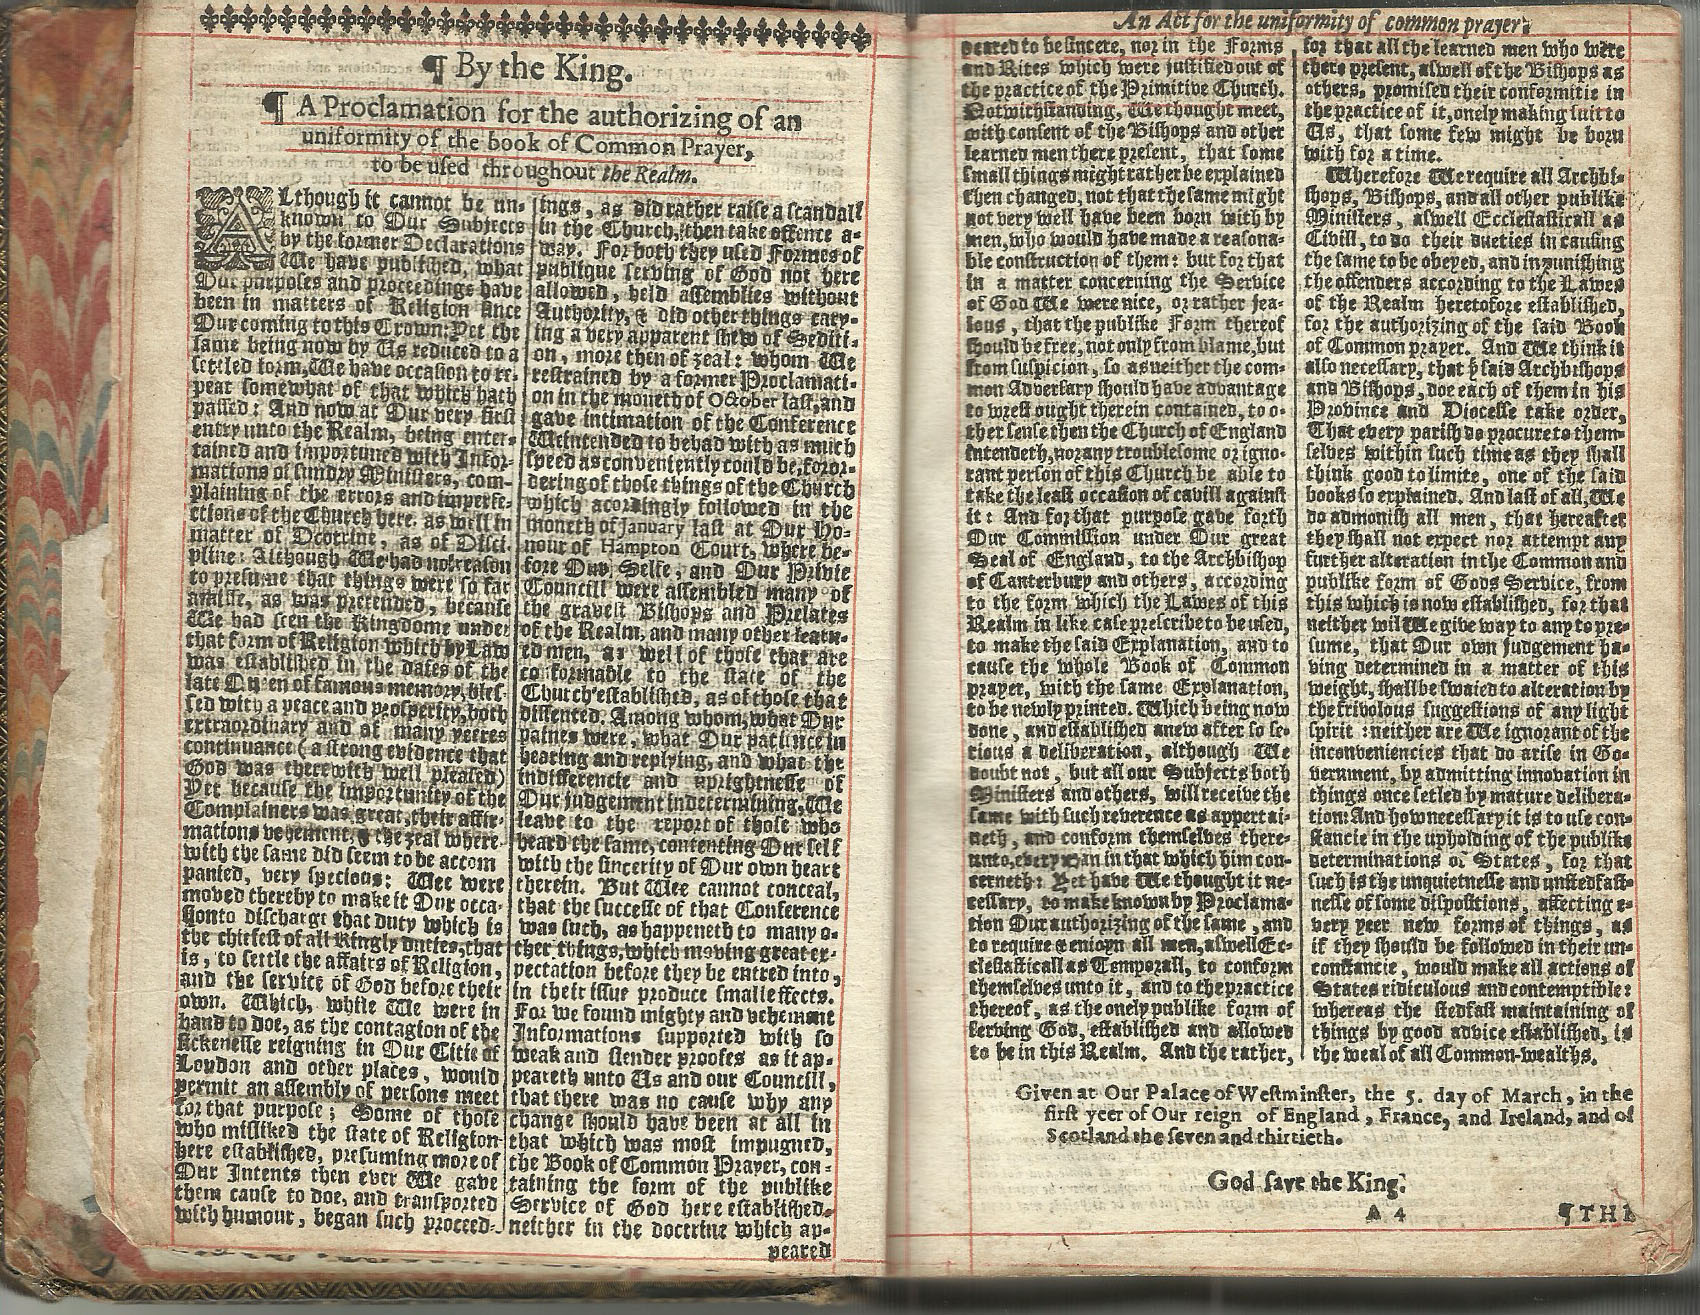 ¶ By the King.
¶ A Proclamation for the authorizing of an
uniformity of the book of Common Prayer,
to be used throughout the Realm.
ALthough it cannot be un-
known to Our Subjects
by the former Declarations
We have published, what
Our purposes and proceedings have
been in matters of Religion since
Our coming to this Crown: Yet the
same being now by Us reduced to a
setled form, We have occasion to re-
peat somewhat of that which hath
passed: And now at Our very first
entry unto the Realm, being enter-
tained and importuned with Infor-
mations of sundry Ministers, com-
plaining of the errors and imperfe-
ctions of the Church here, as well in
matter of Doctrine, as of Disci-
pline: Although We had no reason
to presume that things were so far
amisse, as was pretended, because
We had seen the Kingdome under
that form of Religion which by Law
was established in the daies of the
late Queen of famous memory, bles-
sed with a peace and prosperity, both
extraordinary and of many yeeres
continuance (a strong evidence that
God was therewith well pleased)
Yet because the importunity of the
Complainers was great, their affir-
mations vehement, & the zeal where-
with the same did seem to be accom
panied, very specious: Wee were
moved thereby to make it Our occa-
sion to discharge that duty which is
the chiefest of all Kingly duties, that
is, to settle the affairs of Religion,
and the service of God before their
own. Which, while We were in
hand to doe, as the contagion of the
sickenesse reigning in Our Citie of
London and other places, would
permit an assembly of persons meet
for that purpose; Some of those
who misliked the state of Religion
here established, presuming more of
Our Intents then ever We gave
them cause to doe, and transported
with humour, began such proceed-
ings, as did rather raise a scandall
in the Church, then take offence a-
way. For both they used Formes of
publique serving of God not here
allowed, held assemblies without
Authority, & did other things cary-
ing a very apparent shew of Sediti-
on, more then of zeal: whom We
restrained by a former Proclamati-
on in the moneth of October last, and
gave intimation of the Conference
We intended to be had with as much
speed as conveniently could be, for or-
dering of those things of the Church
which acordingly followed in the
moneth of January last at Our Ho-
nour of Hampton Court, where be-
fore Our Selfe, and Our Privie
Councill were assembled many of
the gravest Bishops and Prelates
of the Realm, and many other learn-
ed men, as well of those that are
conformable to the state of the
Church established, as of those that
dissented. Among whom, what Our
paines were, what Our patience in
hearing and replying, and what the
indifferencie and uprightnesse of
Our judgement in determining, We
leave to the report of those who
heard the same, contenting Our self
with the sincerity of Our own heart
therein. But Wee cannot conceal,
that the successe of that Conference
was such, as happeneth to many o-
ther things, which moving great ex-
pectation before they be entred into,
in their issue produce small effects.
For we found mighty and vehement
Informations supported with so
weak and slender proofes as it ap-
peareth unto Us and our Councill,
that there was no cause why any
change should have been at all in
that which was most impugned,
the Book of Common Prayer, con-
taining the form of the publike
Service of God here established,
neither in the doctrine which ap-
peared
An Act for the uniformity of common prayer.
peared to be sincere, nor in the Forms
and Rites which were justified out of
the practice of the Primitive Church.
Notwithstanding, We thought meet,
with consent of the Bishops and other
learned men there present, that some
small things might rather be explained
then changed, not that the same might
not very well have been born with by
men, who would have made a reasona-
ble construction of them: but for that
in a matter concerning the Service
of God We were nice, or rather jea-
lous, that the publike Form thereof
should be free, not only from blame, but
from suspicion, so as neither the com-
mon Adversary should have advantage
to wrest ought therein contained, to o-
ther sense then the Church of England
intendeth, nor any troublesome or igno-
rant person of this Church be able to
take the least occasion of cavill against
it: And for that purpose gave forth
Our Commission under Our great
Seal of England, to the Archbishop
of Canterbury and others, according
to the form which the Lawes of this
Realm in like case prescribe to be used,
to make the said Explanation, and to
cause the whole Book of Common
prayer, with the same Explanation,
to be newly printed. Which being now
done, and established anew after so se-
rious a deliberation, although We
doubt not, but all our Subjects both
Ministers and others, will receive the
same with such reverence as appertai-
neth, and conform themselves there-
unto, every man in that which him con-
cerneth: Yet have We thought it ne-
cessary, to make known by Proclama-
tion Our authorizing of the same, and
to require & enjoyn all men, aswell Ec-
clesiasticall as Temporall, to conform
themselves unto it, and to the practice
thereof, as the onely publike form of
serving God, established and allowed
to be in this Realm. And the rather,
for that all the learned men who were
there present, aswell of the Bishops as
others, promised their conformitie in
the practice of it, onely making suit to
Us, that some few might be born
with for a time.
Wherefore We require all Archbi-
shops, Bishops, and all other publike
Ministers, aswell Ecclesiasticall as
Civill, to do their dueties in causing
the same to be obeyed, and in punishing
the offenders according to the Lawes
of the Realm heretofore established,
for the authorizing of the said Book
of Common prayer. And We think it
also necessary, that ye said Archbishops
and Bishops, doe each of them in his
Province and Diocesse take order,
That every parish do procure to them-
selves within such time as they shall
think good to limite, one of the said
books so explained. And last of all, We
do admonish all men, that hereafter
they shall not expect nor attempt any
further alteration in the Common and
publike form of Gods Service, from
this which is now established, for that
neither wil We give way to any to pre-
sume, that Our own judgement ha-
ving determined in a matter of this
weight, shall be swaied to alteration by
the frivolous suggestions of any light
spirit: neither are We ignorant of the
inconveniencies that do arise in Go-
vernment, by admitting innovation in
things once setled by mature delibera-
tion: And how necessary it is to use con-
stancie in the upholding of the publike
determinations of States, for that
such is the unquietnesse and unstedfast-
nesse of some dispositions, affecting e-
very yeer new forms of things, as
if they should be followed in their un-
constancie, would make all actions of
States ridiculous and contemptible:
whereas the stedfast maintaining of
things by good advice established, is
the weal of all Common-wealths.
Given at Our Palace of Westminster, the 5. day of March, in the
first yeer of Our reign of England, France, and Ireland, and of
Scotland the seven and thirtieth.
God save the King.
A 4
¶THE